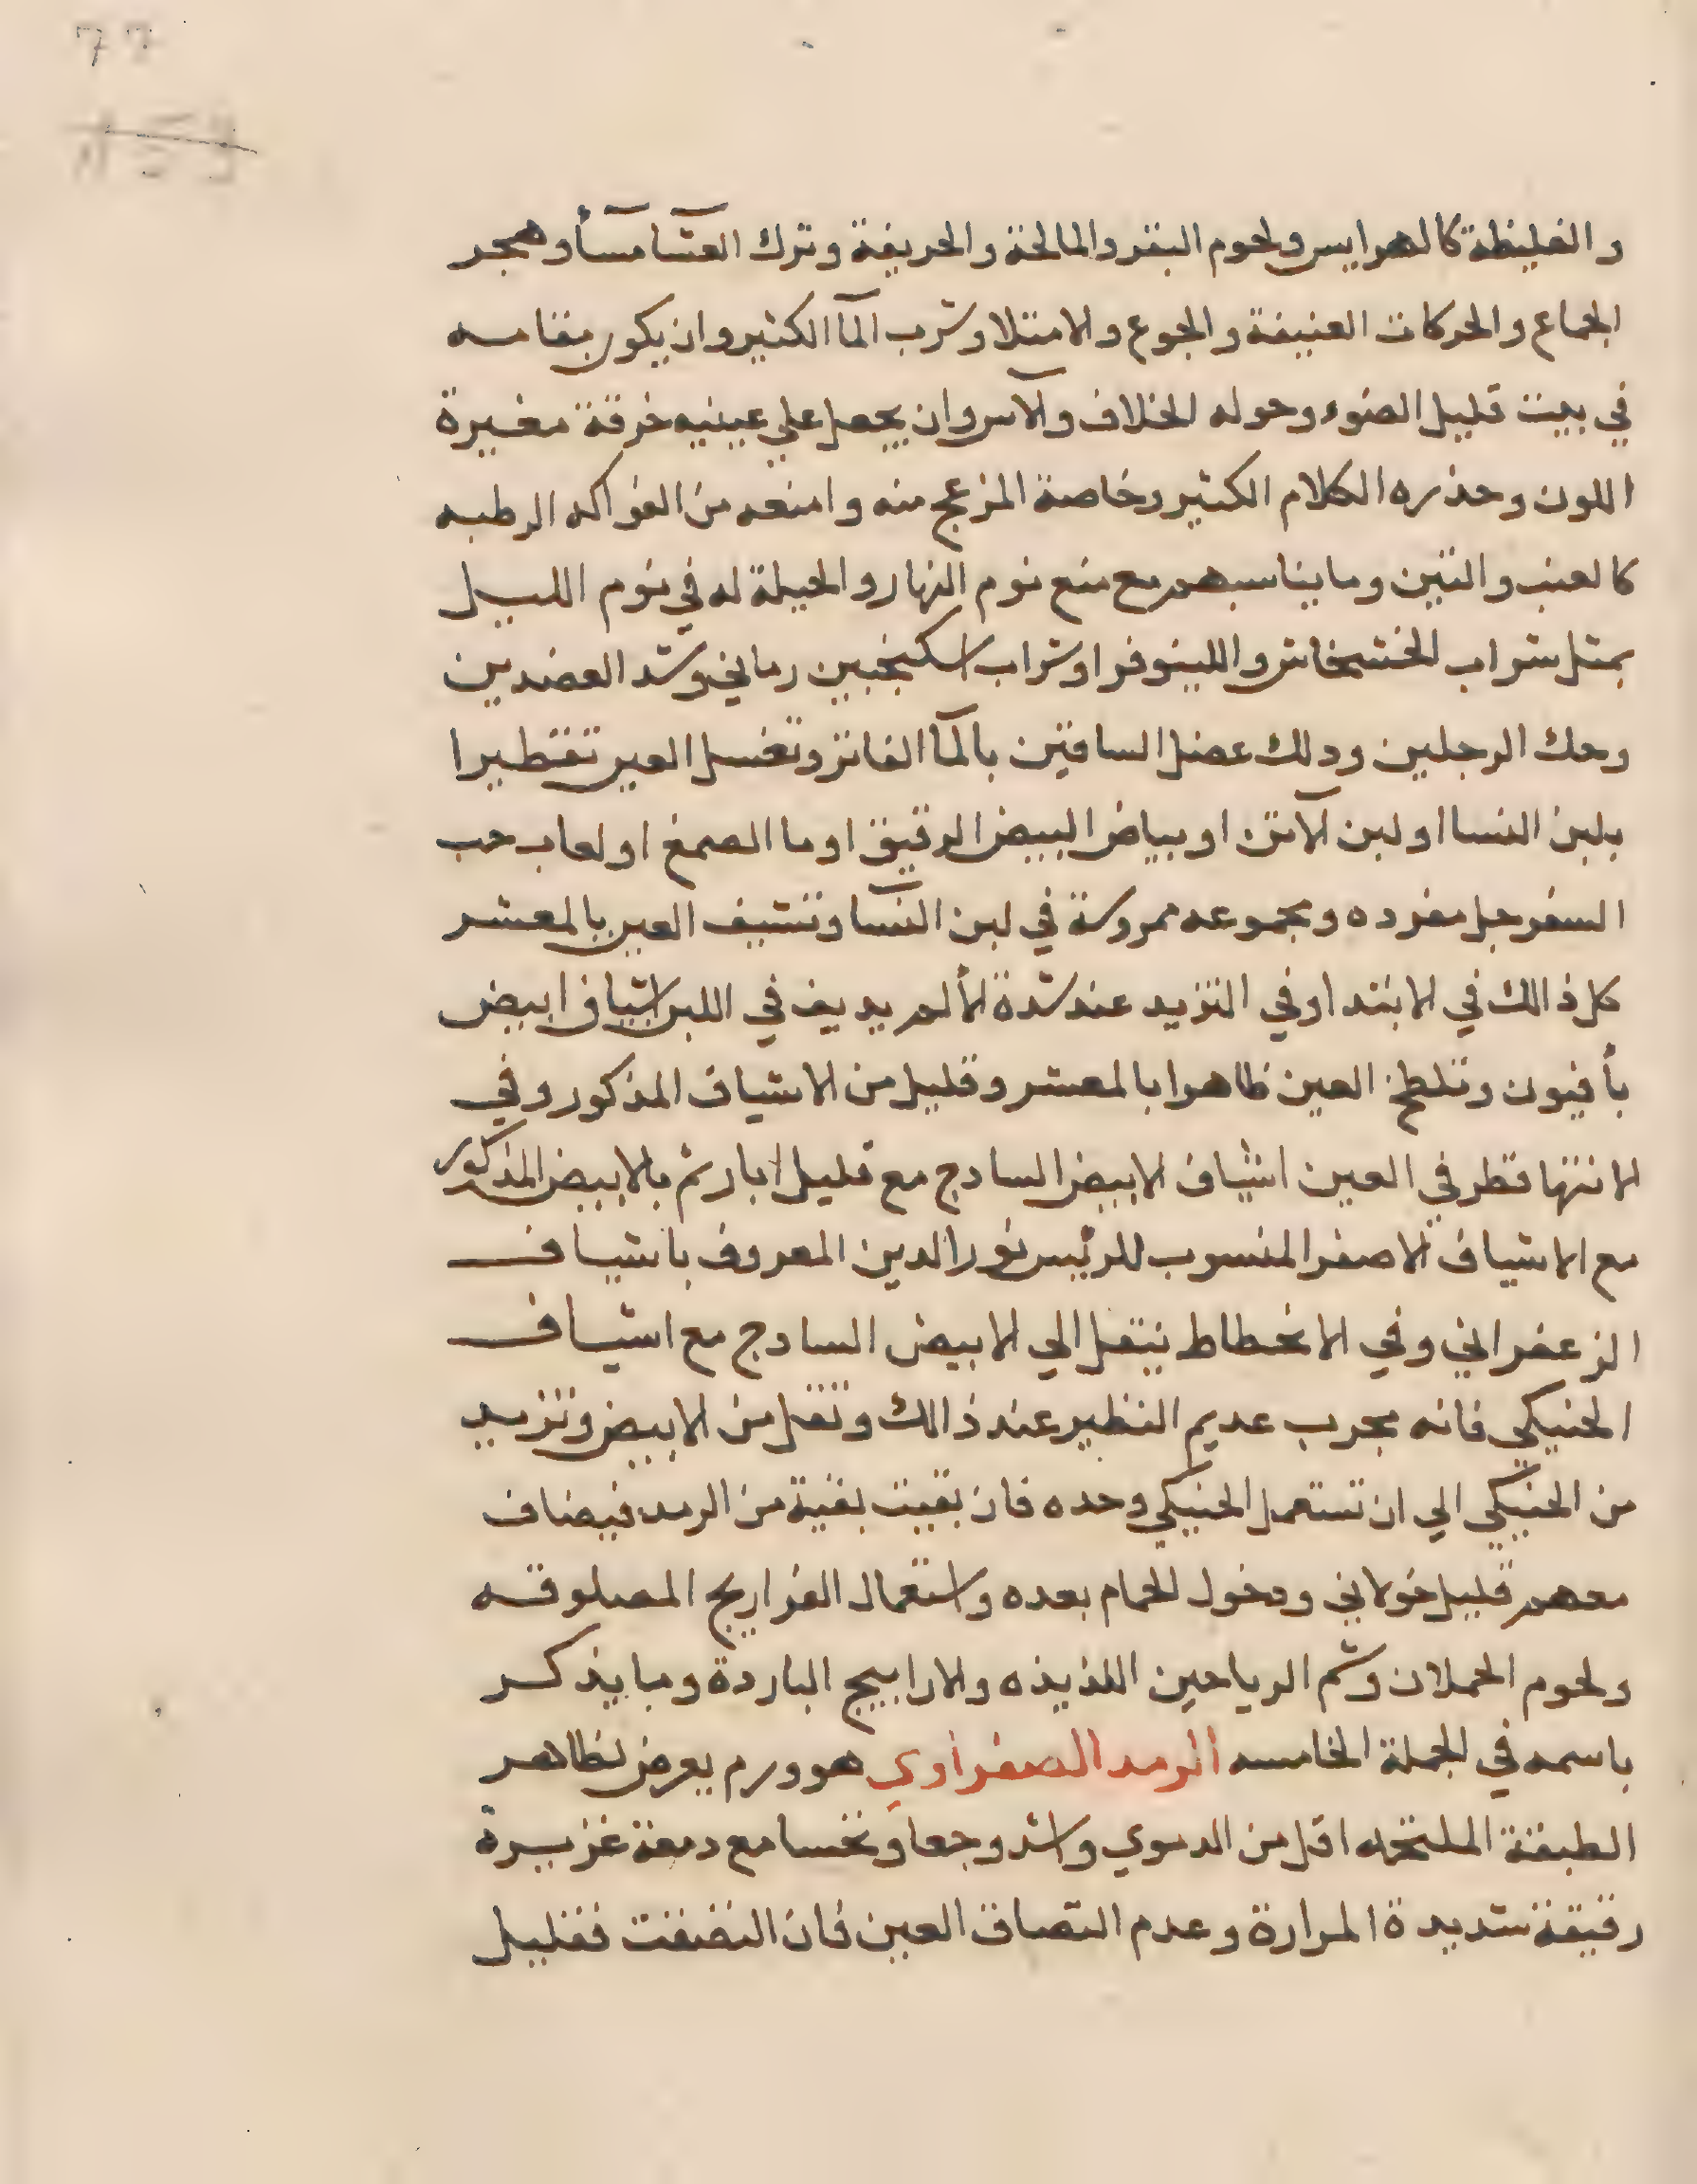 والغليظة كالهرايس ولحوم البقر والمالحة والحريفة وترك العشآ مسآأ وهجر
الجماع والحركات العنيفة والجوع والامتلا وشرب المآ الكثير وان يكون مقامه
في بيت قليل الضوء وحوله الخلاف والآس وان يجعل علي عينيه خرقة مغيرة
اللون وحذره الكلام الكثير وخاصة المزعج منه وامنعه من الفواكه الرطبه
كالعنب والتين وما يناسبهم مع منع نوم النهار والحيلة له في نوم الليل
بمثل شراب الخشخاش واللينوفر او شراب اسكنجبين رماني وشد العضدين
وحك الرجلين ودلك عضل الساقين بالمآ الفاتر وتغسل العين تقطيرا
بلبن النسا او لبن الآتن او بياض البيض الرقيق او ما الصمغ او لعاب حب
السفرجل مفرده ومجموعه ممروسة في لبن النسآ وتشيف العين بالمعشر
كل ذالك في الابتدا وفي التزيد عند شدة الألم يديف في اللبن اشياف ابيض
بأفيون وتلطخ العين ظاهرا بالمعشر وقليل من الاشياف المذكور وفي
الانتها قطر في العين اشياف الابيض السادج مع قليل ابار ثم بالابيض المذكور
مع الاشياف الاصفر المنسوب للرئيس نور الدين المعروف باشياف
الزعفراني وفي الانحطاط ينتقل الي الابيض السادج مع اشياف
الحنيكي فانه مجرب عديم النظير عند ذالك وتقل من الابيض وتزيد
من الحنيكي الي ان تستعمل الحنيكي وحده فان بقيت بقية من الرمد فيضاف
معهم قليل خولاني ودخول الحمام بعده واستعمال الفراريج المصلوقه
ولحوم الحملان وشم الرياحين اللذيذه والارابيح الباردة ومما يذكر
باسمه في الجملة الخامسه الرمد الصفراوي هو ورم يعرض لظاهر
الطبقة الملتحمه اقل من الدموي واشد وجعا ونخسا مع دمعة غزيرة
رقيقة شديدة المرارة وعدم التصاق العين فان التصقت فقليل